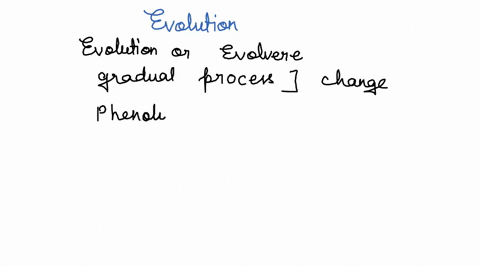 Evolution
Evolution or Evolvere
gradual process ] change
Phenot